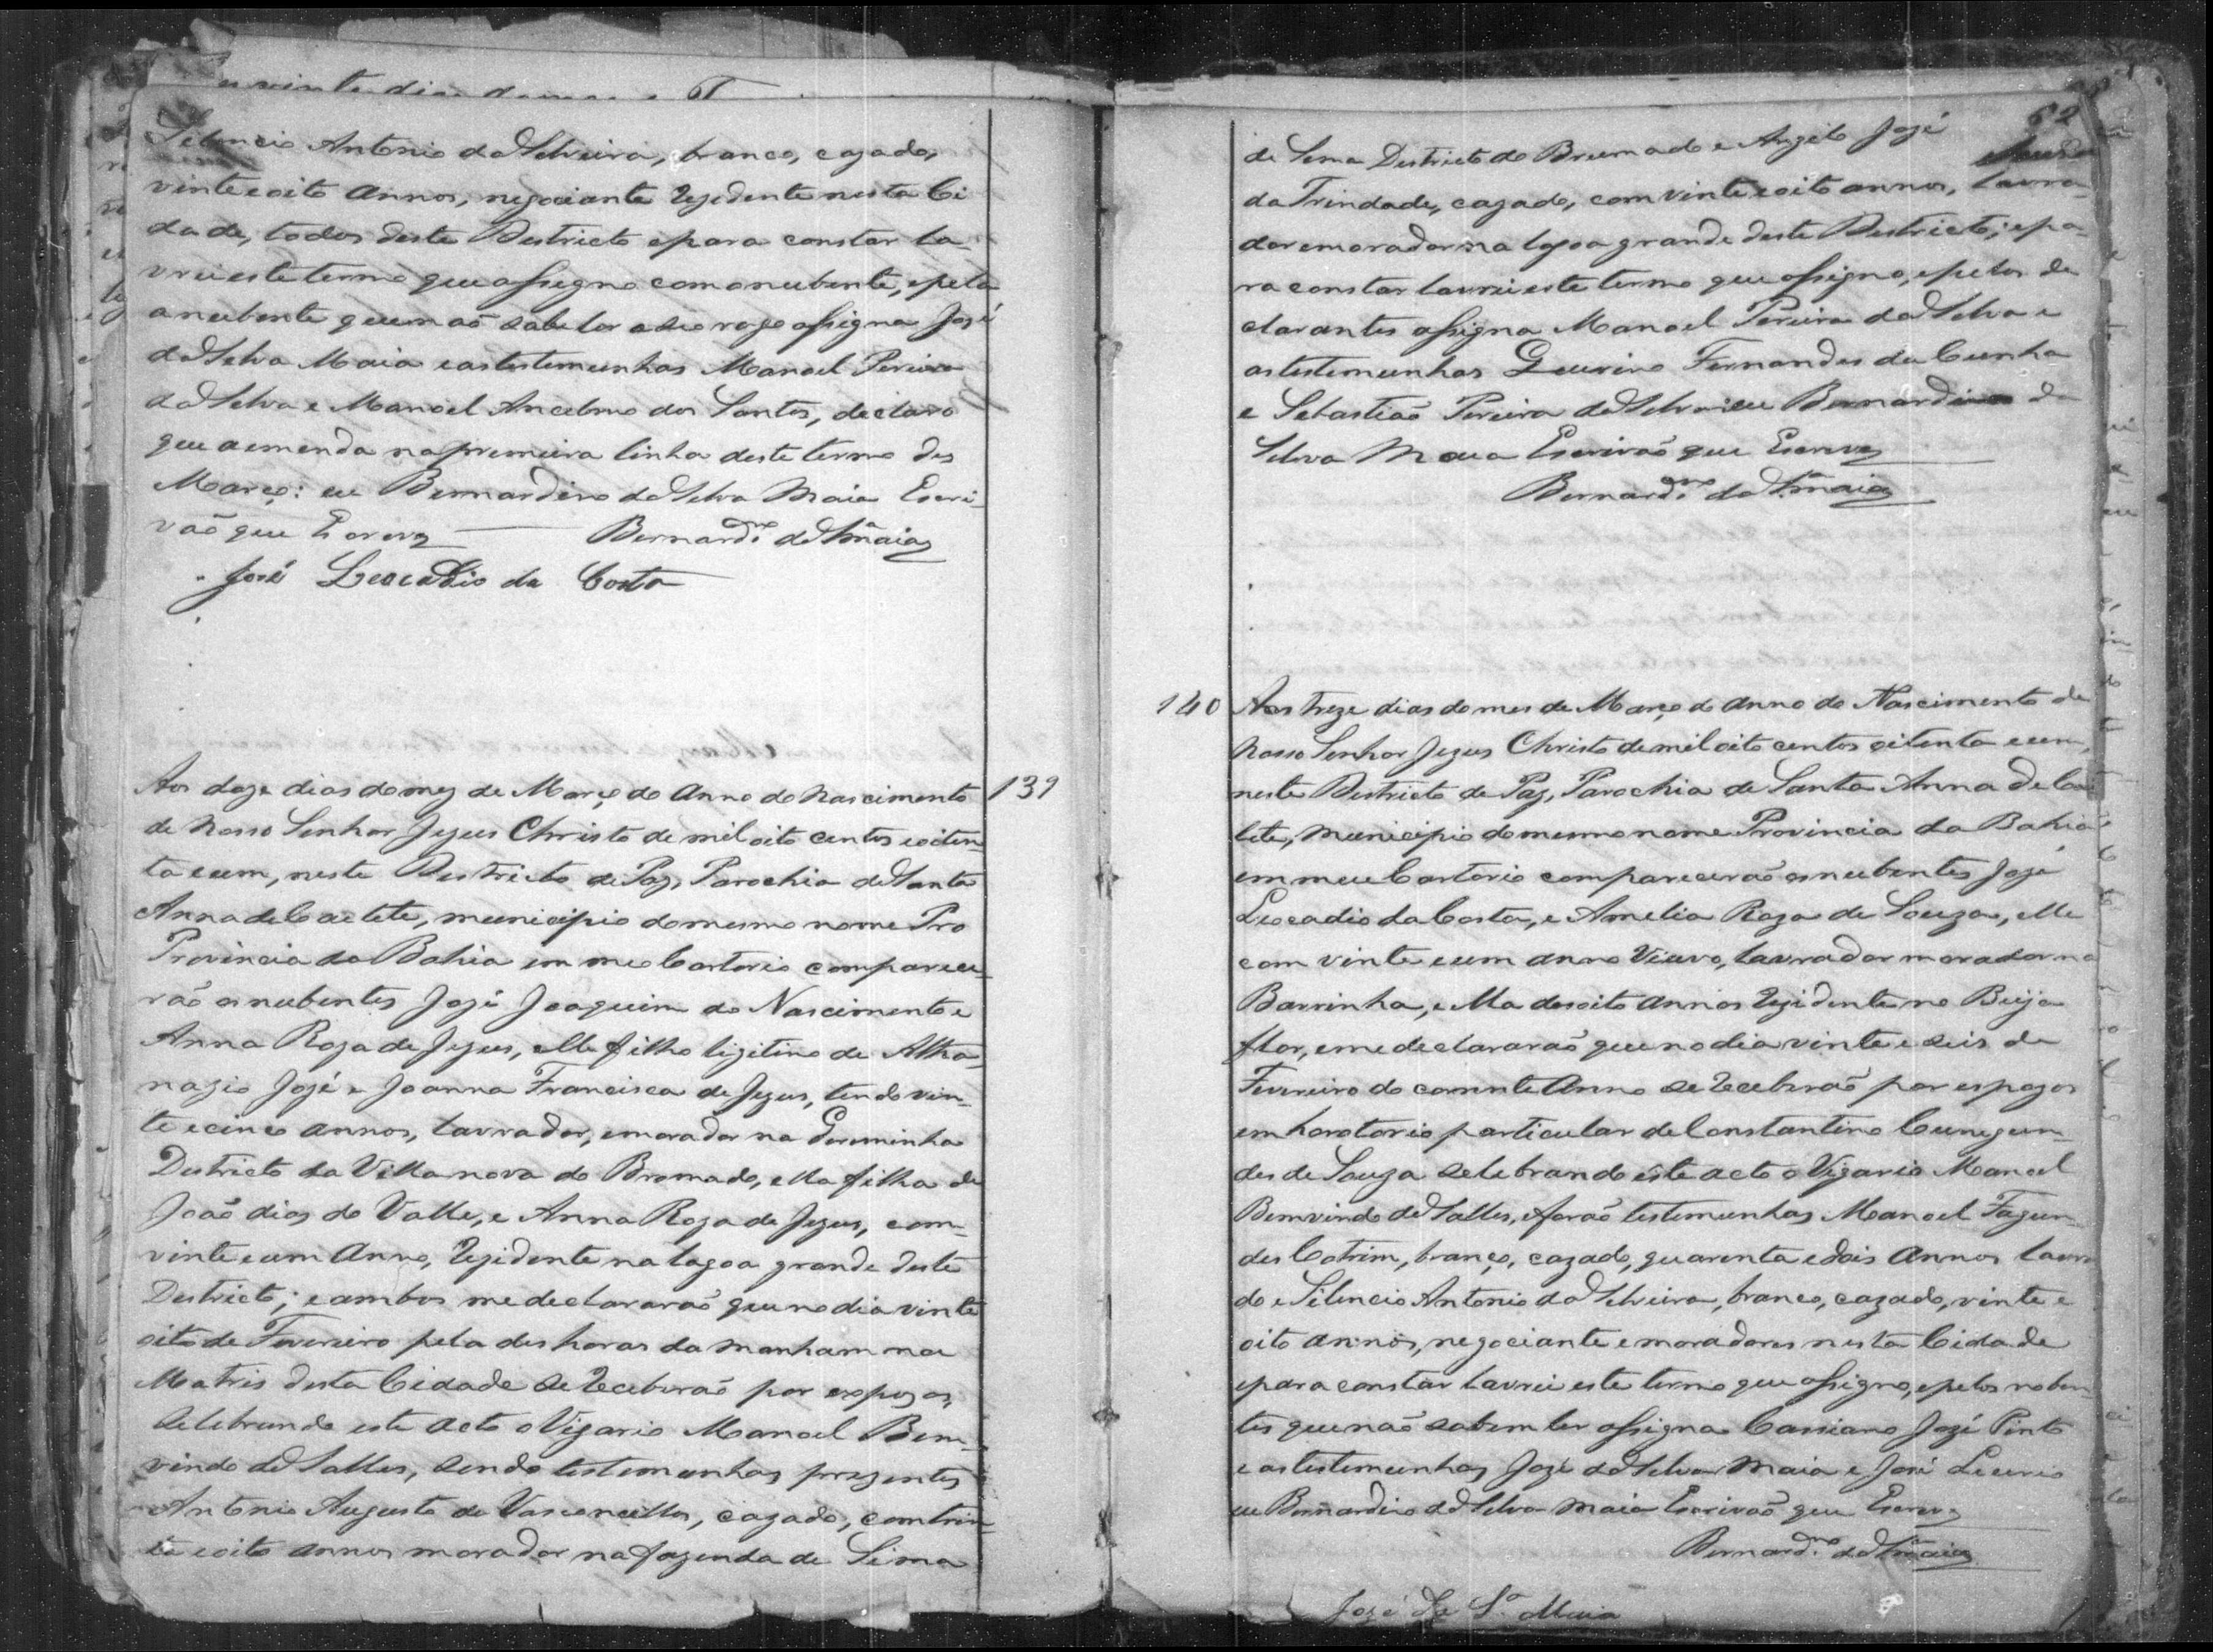 Silencio Antonio da Silveira, branco, cazado,
vinte e oito annos, negociante rezidente nesta Ci
dade, todos deste Destricto e para constar la-
vrei este termo que assigno com o nubente, e pela
a nubente que não sabe ler a seo rogo assigna José
da Silva Maia e as testemunhas Manoel Pereira
da Silva e Manoel Ancelmo dos Santos, declaro
que a emenda na premeira linha deste termo des
Março: eu Bernardino da Silva Maia Escri-
vão que Escrevy Bernard.no da S.a Maia
José Leocadio da Costa
Aos doze dias do mez de Março do Anno do Nascimento 139
de Nosso Senhor Jezus Christo de mil oito centos e oiten-
ta e um, neste Destricto de Paz, Parochia de Santa
Anna de Caetete, municipio do mesmo nome Pro
Provincia da Bahia em meo Cartorio comparece-
rão os nubentes José Joaquim do Nascimento e
Anna Roza de Jezus, elle filho ligitimo de Atha-
nazio José e Joanna Francisca de Jezus, tendo vin-
te e cinco annos, lavrador, e morador na
Destricto da Villa nova do Bromado, ella filha de
João dias do Valle, e Anna Roza de Jezus, com
vinte e um Anno, Rezidente na lagoa grande deste
Destricto; e ambos me declararão que no dia vinte
oito de Fevereiro pela des horas da manham na
Matris desta Cidade se receberão por espozos,
selebrando este acto o Vigario Manoel Bem-
vindo de Salles, sendo testemunhas prezentes
Antonio Augusto de Vasconcellos, cazado, com trin-
ta e oito annos morador na fazenda de Sima
62
de Sima Destricto do Brumado e Angelo José
da Trindade, cazado, com vinte e oito annos, lavra-
dor e morador na lagoa grande deste Destricto; e pa-
ra constar lavrei este termo que assigno, e pelos de
clarantes assigna Manoel Pereira da Silva e
as testemunhas Fernandes da Cunha
e Sebastião Pereira da Silva eu Bernardino da
Silva Maia Escrivão que Escrevy
Bernard.no da S.a Maia
140 Aos treze dias do mes de Março do anno do Nascimento de
Nosso Senhor Jezus Christo de mil oito centos oitenta e um,
neste Destricto de Paz, Parochia de Santa Anna de Cae
tete, municipio do mesmo nome Provincia da Bahia
em meu Cartorio comparecerão os nubentes José
Leocadio da Costa, e Amelia Roza de Souza, elle
com vinte e um anno Viuvo, lavrador morador na
Barrinha, e Ella desoito annos Rezidente no Beija
flor, e me declararão que no dia vinte e seis de
Fevereiro do corrente Anno se receberão por espozos
em horatorio particular de Constantino Cunegun-
des de Souza selebrando este acto o Vigario Manoel
Bemvindo de Salles, e forão testemunhas Manoel Fagun-
des Cotrim, branco, cazado, quarenta e dois Annos lavra
do e Silencio Antonio da Silveira, branco, cazado, vinte e
oito annos, negociante e moradores nesta Cidade
e para constar lavrei este termo que assigno, e pelos noben
tes que não sabem ler assigna Cassiano José Pinto
e as testemunhas José da Silva Maia e José
eu Bernardino da Silva Maia Escrivão que Escrevy
Bernard.no da S.a Maia
José da S.a Maia